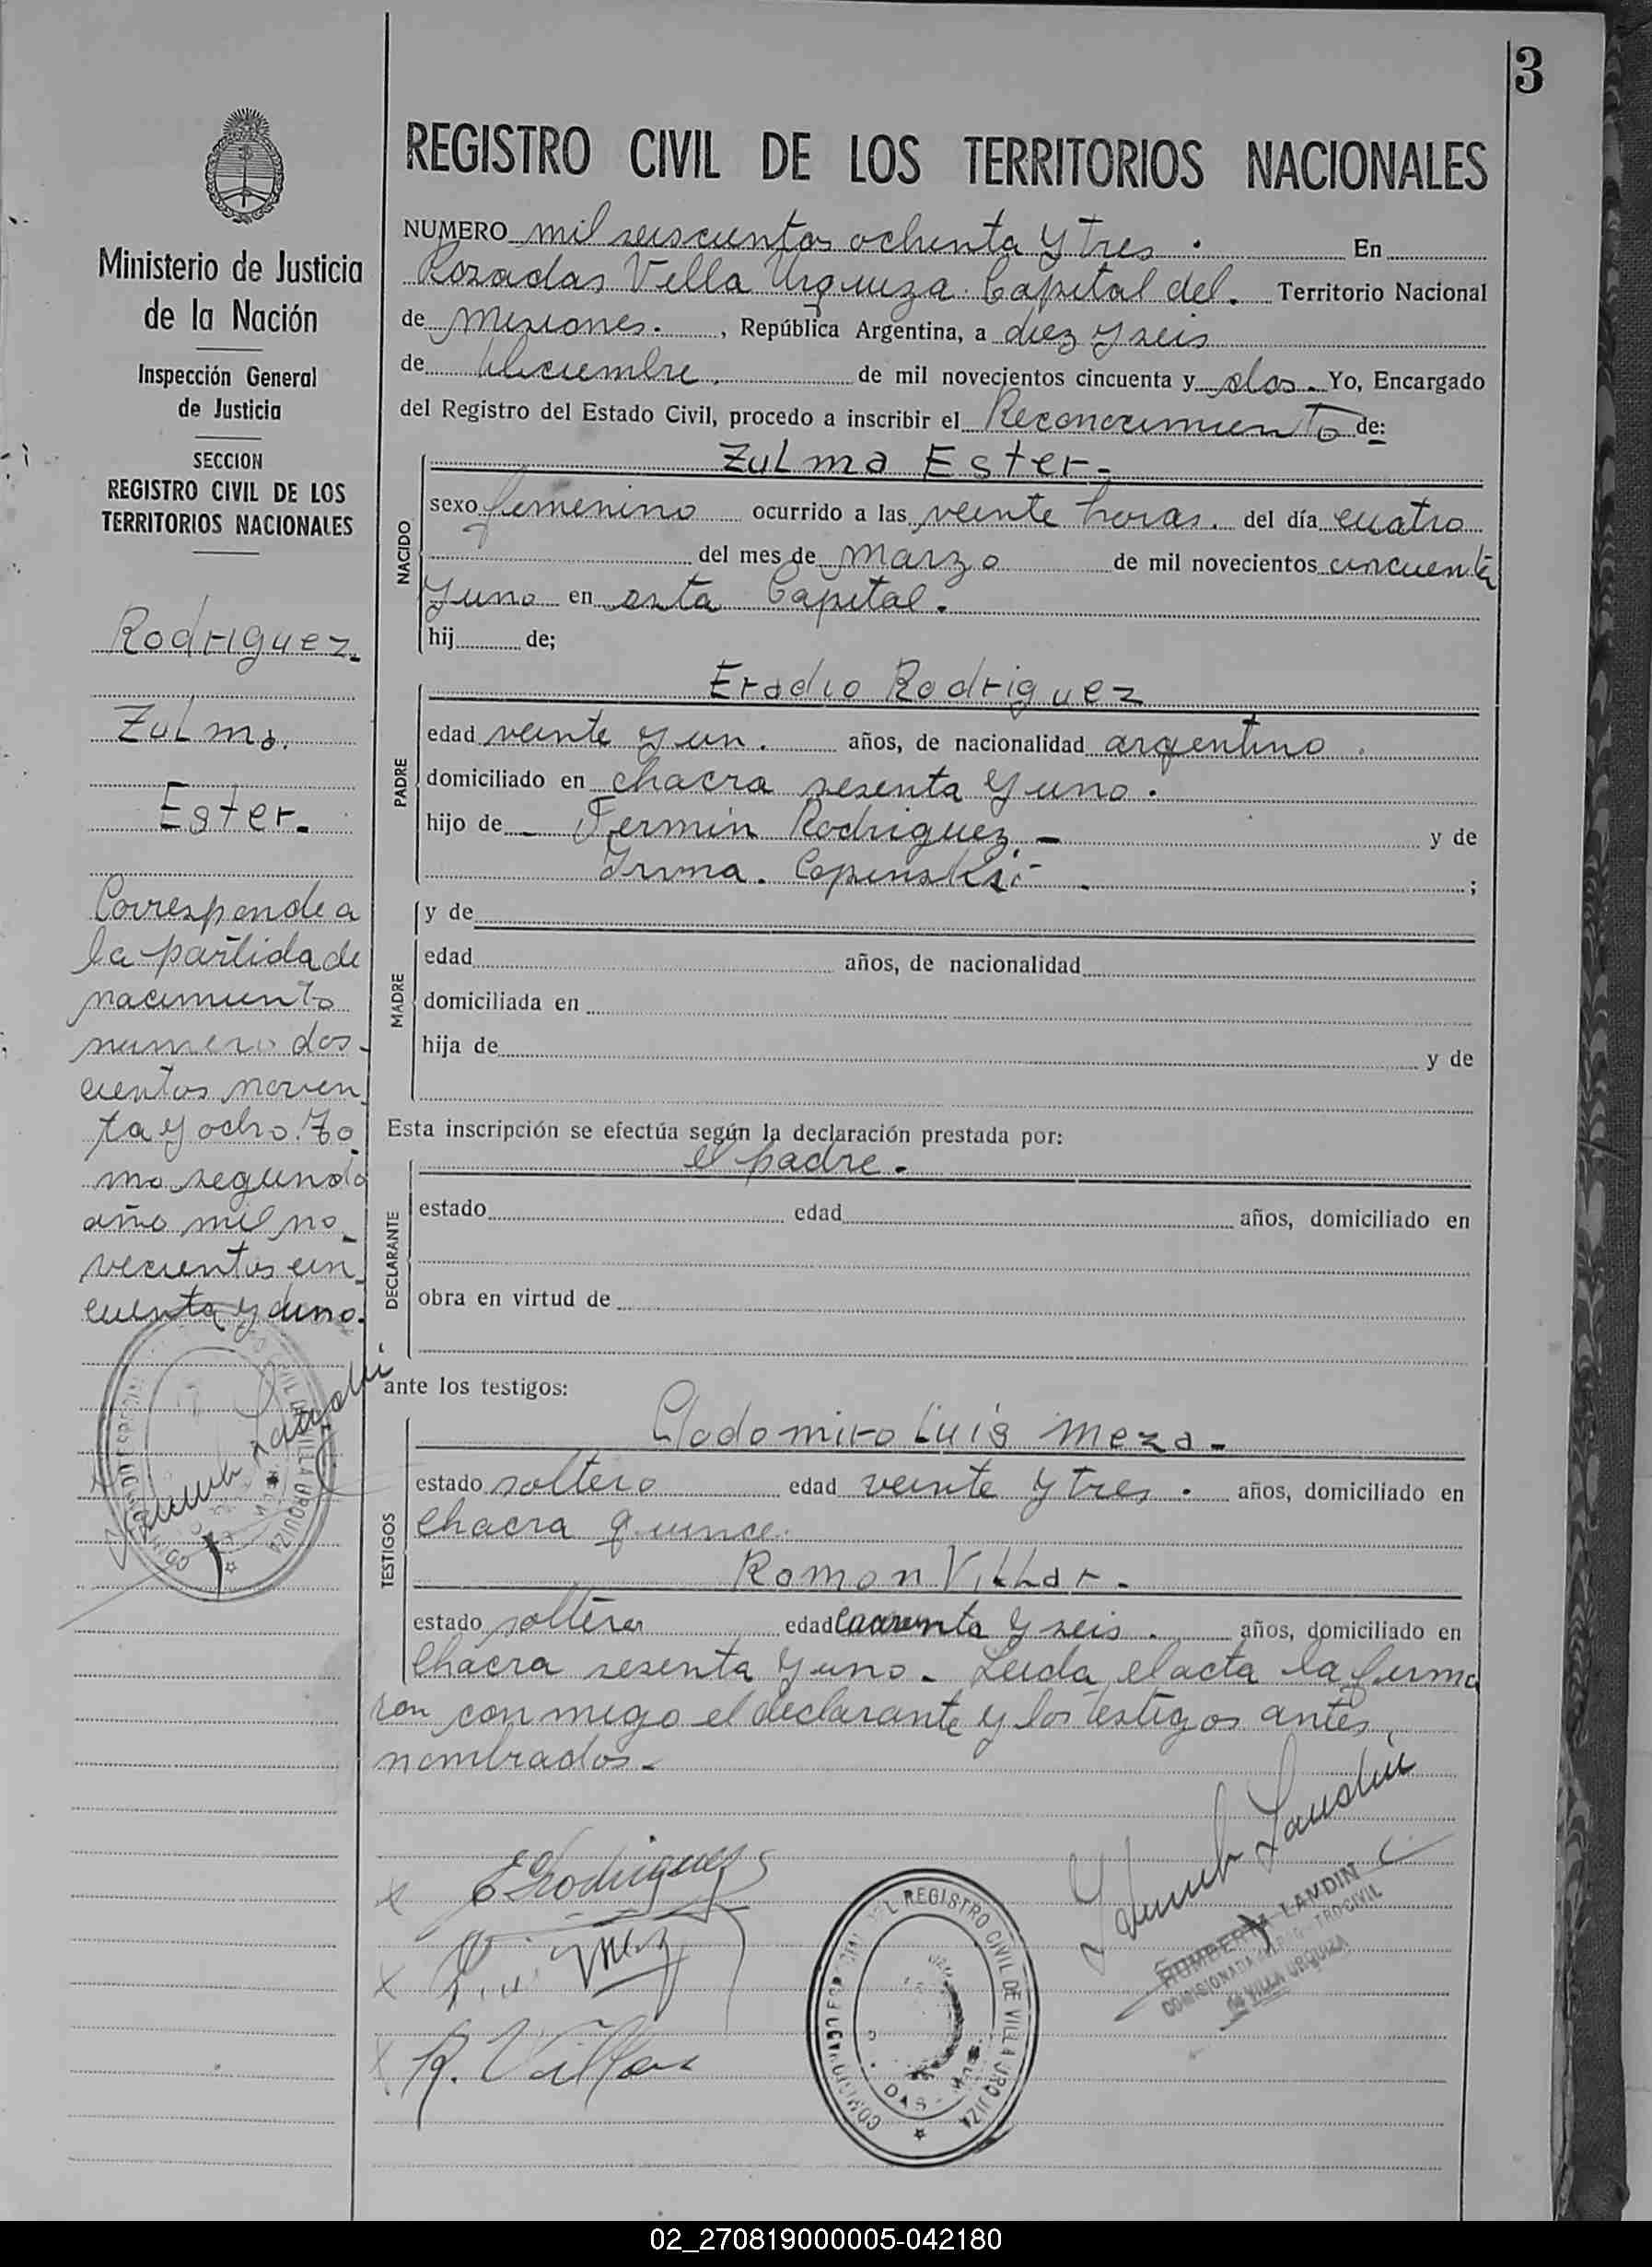 3
REGISTRO CIVIL DE LOS TERRITORIOS NACIONALES
Ministerio de Justicia
de la Nación
Inspección General
de Justicia
SECCION
REGISTRO CIVIL DE LOS
TERRITORIOS NACIONALES
Rodriguez.
Zulma.
Ester.
Corresponde a
la partida de
nacimiento
numero dos-
cientos noven
ta y ocho. To
mo segundo
año mil no
vecientos cin
cuenta y uno.
NUMERO mil seiscientos ochenta y tres. En
Posadas Villa Urquiza. Capital del. Territorio Nacional
de Misiones., República Argentina, a diez y seis
de Diciembre. de mil novecientos cincuenta y dos. Yo, Encargado
del Registro del Estado Civil, procedo a inscribir el Reconocimiento de:
Zulma Ester-
NACIDO
sexo femenino ocurrido a las veinte horas. del día cuatro
del mes de marzo de mil novecientos cincuenta
y uno en esta Capital.
hij de;
Eradio Rodriguez
PADRE
edad veinte y un. años, de nacionalidad argentino.
domiciliado en chacra sesenta y uno.
hijo de - Fermin Rodriguez.- y de
Irma. ;
MADRE
y de
edad años, de nacionalidad
domiciliada en
hija de y de
Esta inscripción se efectúa según la declaración prestada por:
el padre.
DECLARANTE
estado edad años, domiciliado en
obra en virtud de
ante los testigos:
Clodomiro Luis Meza-
TESTIGOS
estado soltero edad veinte y tres. años, domiciliado en
chacra quince.
Roman Villar.
estado soltero edad cuarenta y seis. años, domiciliado en
chacra sesenta y uno. Leida el acta la firma
ron conmigo el declarante y los testigos antes
nombrados-
E Rodriguez
R. Villar
REGISTRO CIVIL DE VILLA URQUIZA
HUMBERTA LANDIN
DE VILLA URQUIZA
02_270819000005-042180